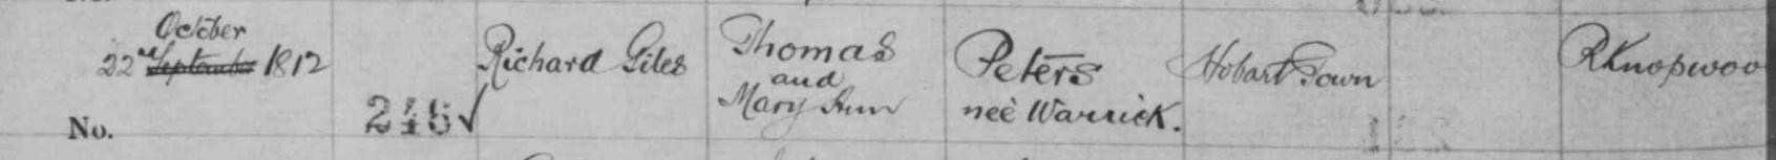 October
22nd September 1812
Richard Giles
Thomas
and
Mary Ann
Peters
neè Warrick.
Hobart Town
RKnopwoo
No.
245✓